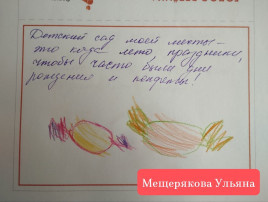 Детский сад моей мечты –
это когда лето, праздники,
чтобы часто были дни
рождения и конфеты!
Мещерякова Ульяна